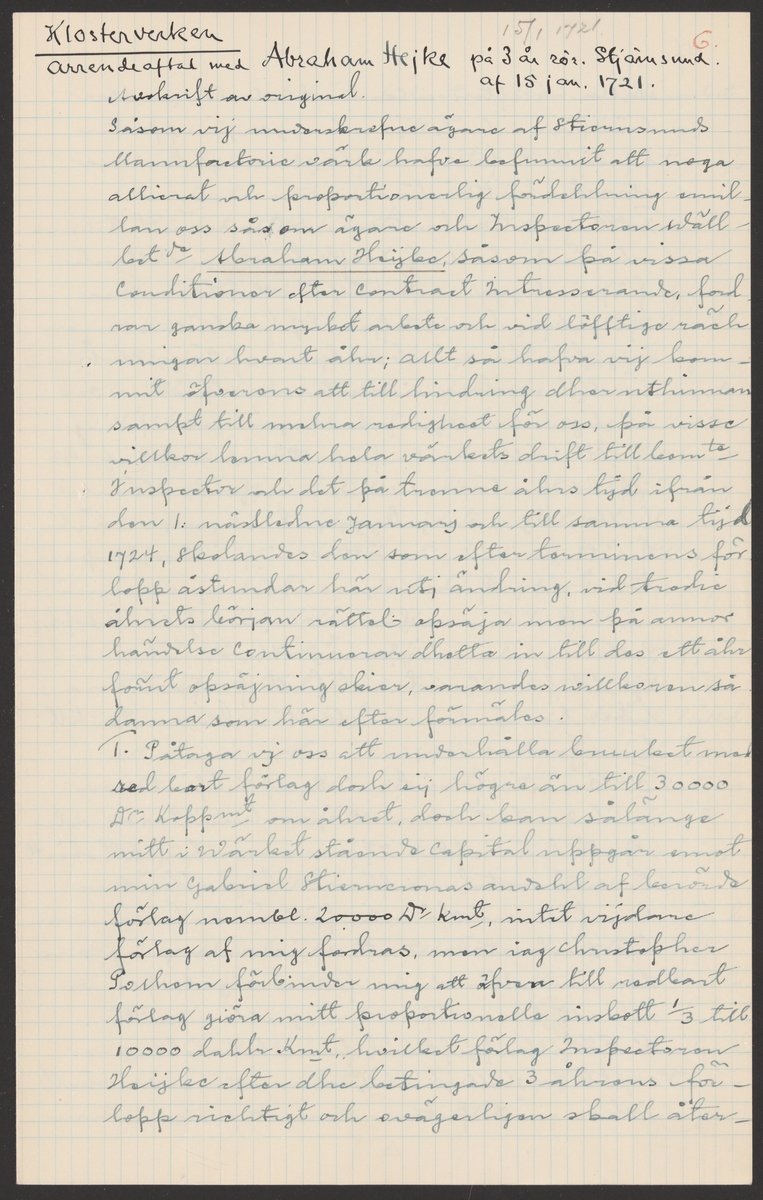 15/1 1721
6.
Klosterverken
Arrendeaftal med Abraham Hejke på 3 år rör. Stjärnsund.
af 15 jan. 1721.
Avskrift av original.
Såsom vij underskrefne ägare af Stiernsunds
Manufactorie värk hafve befunnit att noga
allierat och proportionerlig fördehlning emil-
lan oss såsom ägare och Inspectoren Wäll-
bet de Abraham Heijke, såsom på vissa
Conditioner efter Contract Intresserande, ford-
rar ganska mycket arbete och vid löfftige räch
ningar hvart åhr; allt så hafva vij kom-
mit öfverens att till lindring dheruthinnan
sampt till mehra redighet för oss, på visse
villkor lemna hela värkets drift till bem te
Inspector och det på trenne åhrs tijd ifrån
den 1. nästledne Januarij och till samma tijd
1724, skolandes den som efter terminens för
lopp åstundar här utj ändring, vid tredie
åhrets början rättel. opsäja men på annor
händelse Continuerar dhetta in till des ett åhr
förut opsäjning skier, varandes willkoren så
danna som här efter förmäles.
1. Påtaga vj oss att underhålla bruuket med
redbart förlag doch eij högre än till 30000
Dr Koppmt om åhret, doch kan sålänge
mitt i Wärket stående Capital uppgår emot
min Gabriel Stierncronas andehl af berörde
förlag nembl. 20000 Dr Kmt, intet vijdare
förlag af mig fordras, men iag Christopher
Polhem förbinder mig att äfven till redbart
förlag giöra mitt proportionelle inskott 1/3 till
10000 dahlr Kmt, hvilket förlag Inspectoren
Heijke efter dhe betingade 3 åhrens för-
lopp richtigt och ovägerligen skall åter-